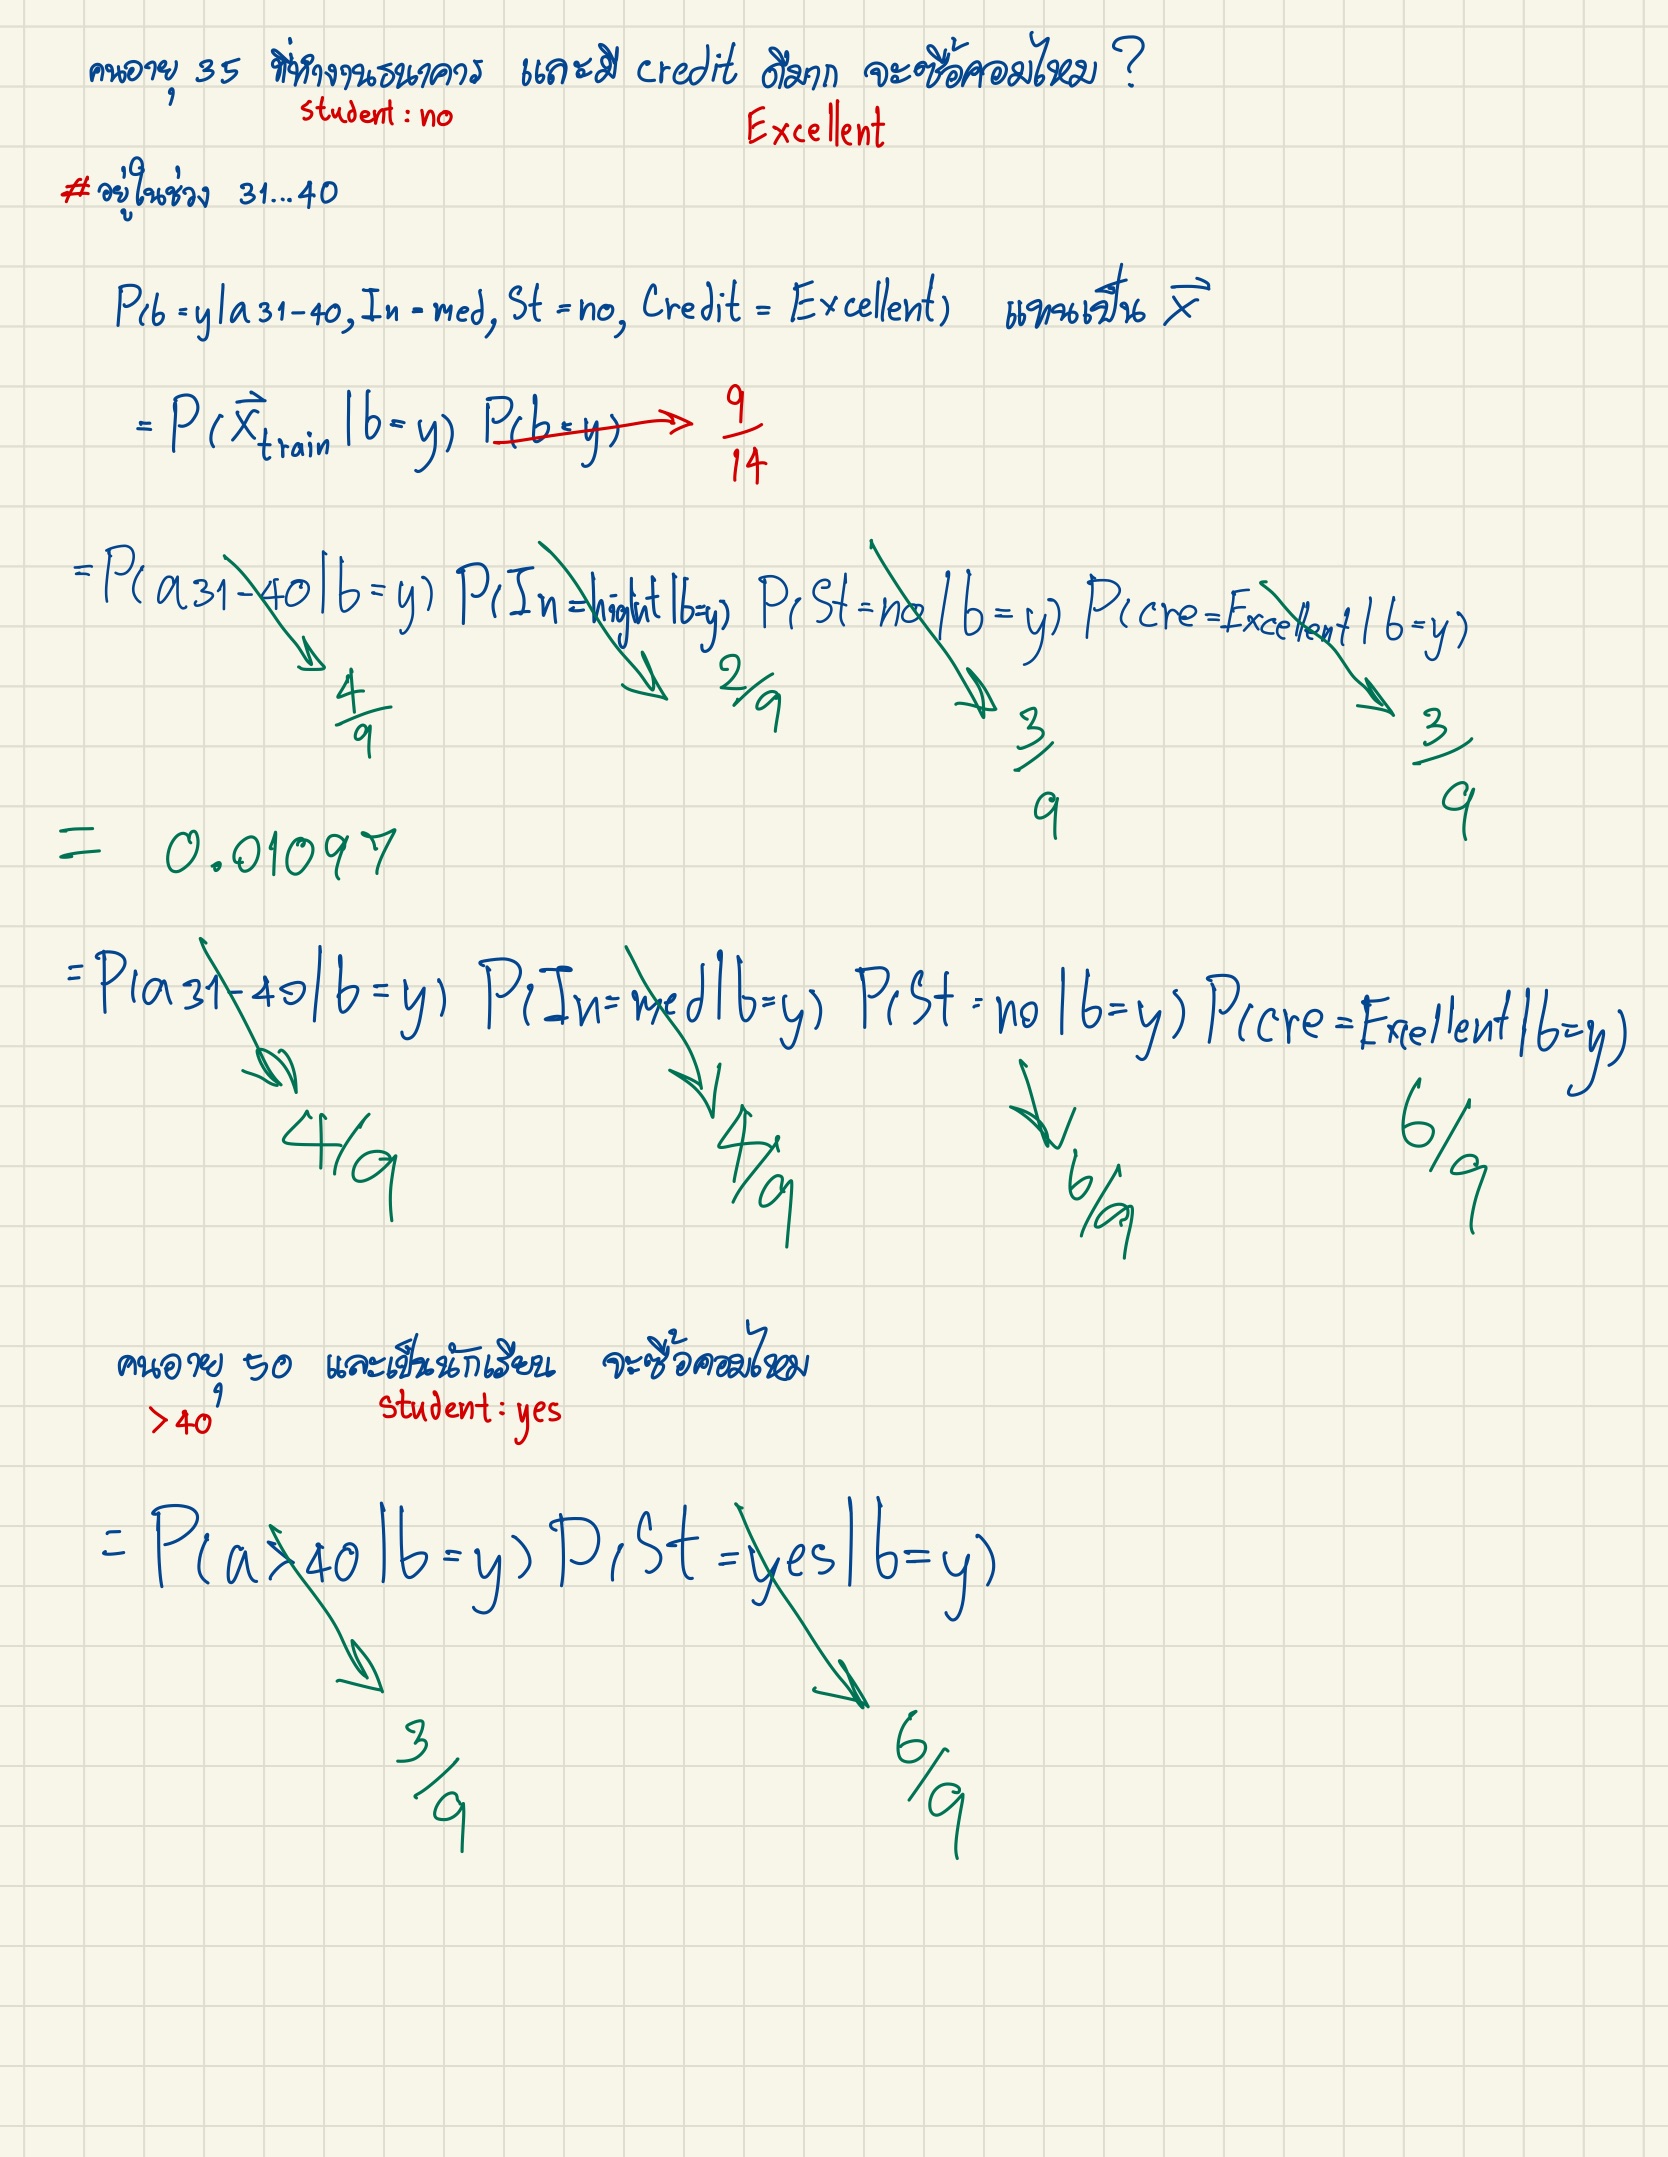 คนอายุ 35 ที่ทำงานธนาคาร และมี credit ดีมาก จะซื้อคอมไหม ?
student : no Excellent
# อยู่ในช่วง 31...40
P(b = y | a 31-40, In = med, St = no, Credit = Excellent) แทนเป็น x⃗
= P( x⃗train | b = y) P(b = y) → 9/14
= P( a 31-40 | b = y) P( In = hight | b = y) P( St = no | b = y) P( cre = Excellent | b = y)
4/9 2/9 3/9 3/9
= 0.01097
= P(a 31-40 | b = y) P( In = med | b = y) P( St = no | b = y) P(cre = Exellent | b = y)
4/9 4/9 6/9 6/9
คนอายุ 50 และเป็นนักเรียน จะซื้อคอมไหม
>40 student : yes
= P( a > 40 | b = y) P( St = yes | b = y)
3/9 6/9